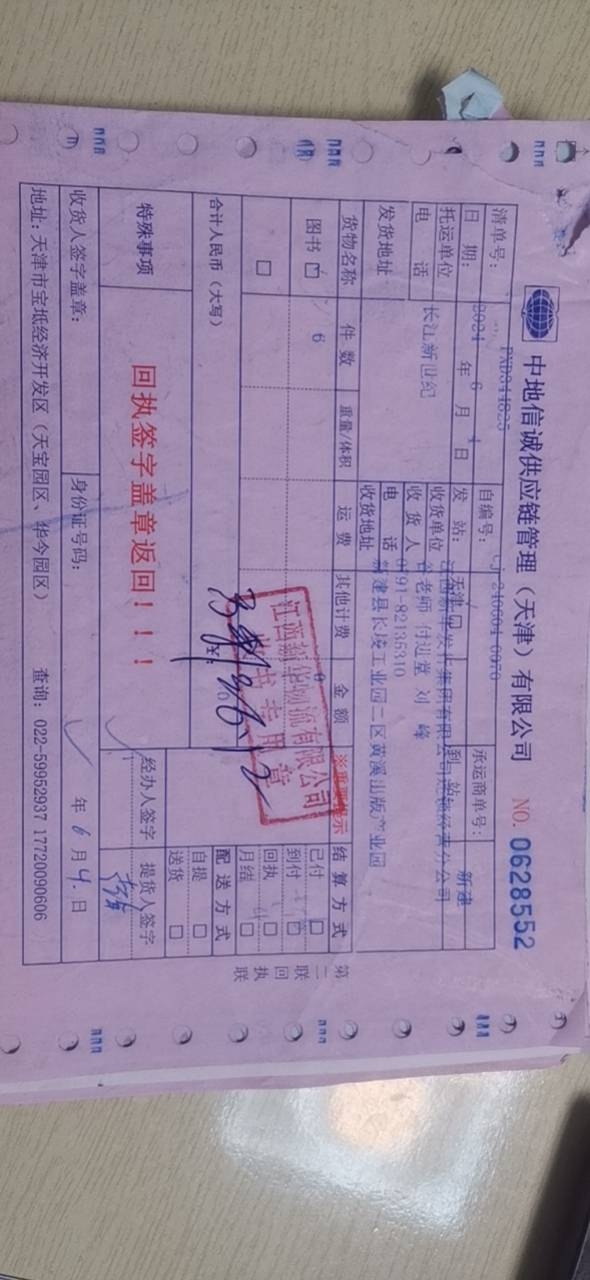 中地信诚供应链管理（天津）有限公司 NO. 0628552
清单号： PXD344825 自编号： 承运商单号：
日 期： 2024 年 6 月 4 日 发 站： 天津 到 站： 新建
托运单位 长江新世纪 收货单位
电 话 收 货 人 付进堂 刘 峰
发货地址 电 话 0791-82135310
收货地址 新建县长堎工业园二区黄溪出版产业园
货物名称 件 数 重量/体积 运 费 其他计费 金 额 ※重要提示 结 算 方 式
图书 6
已付
到付
回执
月结
合计人民币（大写） ￥：
配 送 方 式
自提
送货
江西新华物流有限公司
专用章
特殊事项 回执签字盖章返回！！！ 经办人签字 提货人签字
收货人签字盖章： 身份证号码： 年 6 月 4. 日
地址：天津市宝坻经济开发区（天宝园区、华今园区） 查询：022-59952937 17720090606
第二联 回执联